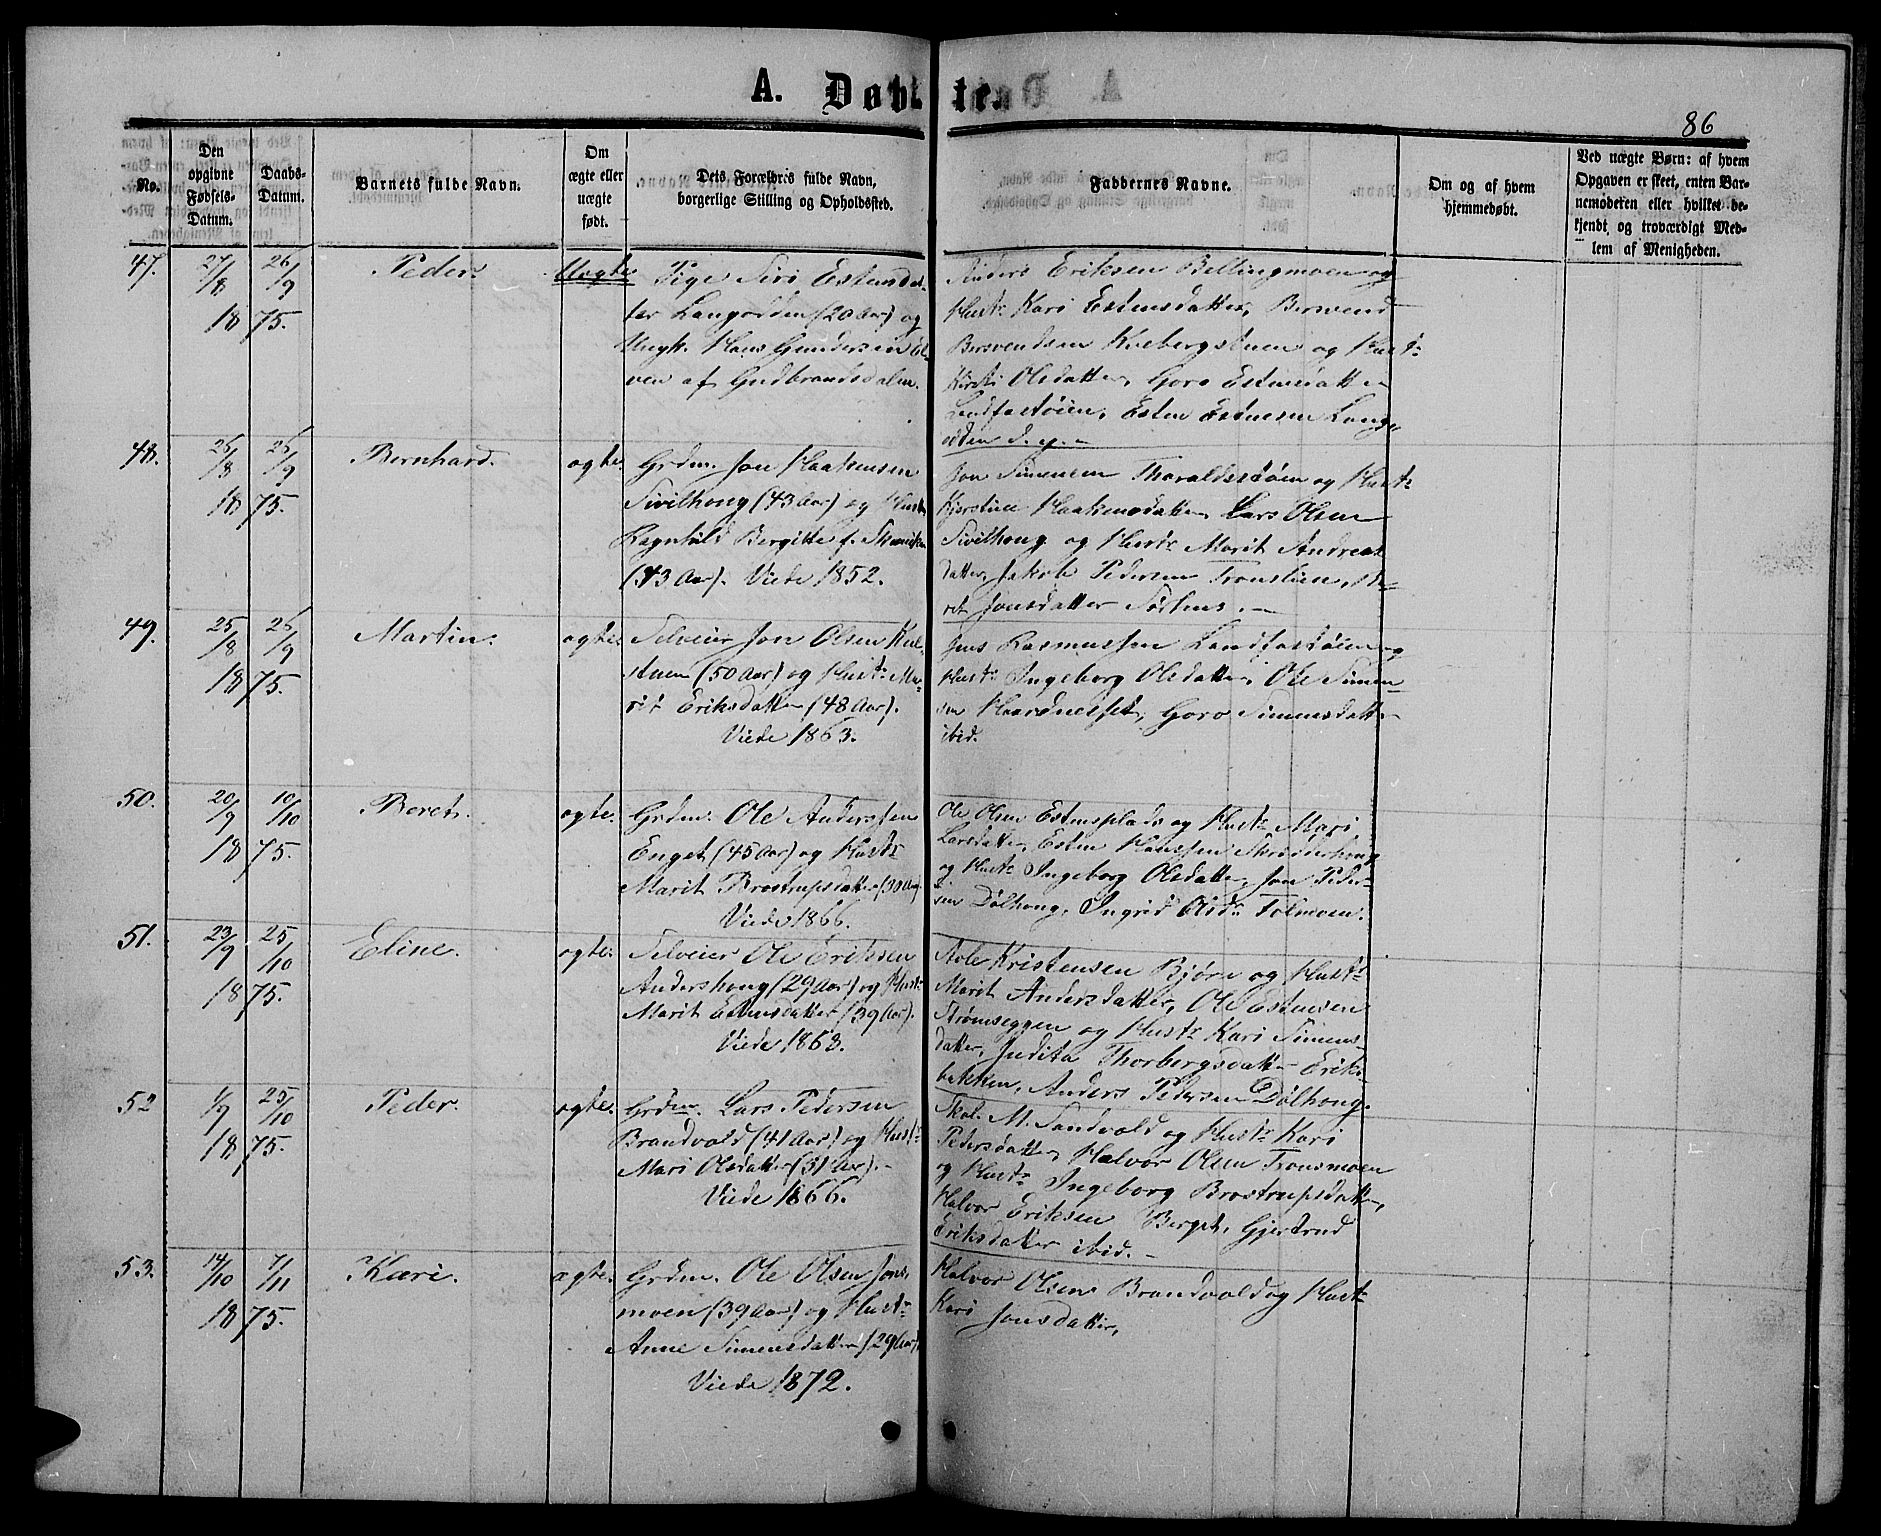 A. Døbte.
86
No.
Den opgivne Fødsels-Datum.
Daabs-Datum.
Barnets fulde Navn.
Om ægte eller uægte født.
Dets Forældres fulde Navn,
borgerlige Stilling og Opholdssted.
Faddernes Navne.
Om og af hvem
hjemmedøbt.
Ved uægte Børn: af hvem
Opgaven er skeet, enten Bar-
nemoderen eller hvilket be-
kjendt og troværdigt Med-
lem af Menigheden.
47. 27/8 26/9 Peder. Uægte Pige Siri Estensdat-
1875. ter Langødden (20 Aar) og
Ungk. Hans Gundersen El-
ven af Gudbrandsdalen.
Anders Eriksen Bellingmoen og
Hustr Kari Estensdatter, Berswend
Bersvendsen Kvebergstuen og Hustr
Kirsti Olsdatter, Goro Estensdatter
Landfastøien, Esten Estensen Lang-
ødden d. y. -
48. 26/8 26/9 Bernhard. ægte. Grdm. Jon Haakensen
1875. Sivilhoug (43 Aar) og Hustr
Ragnhild Bergitte f.
(43 Aar). Viede 1852.
Jon Simensen Thoraldsstøien og Hustr
Kjerstine Haakensdatter, Lars Olsen
Sivilhoug og Hustr Marit Andreas-
datter, Jakob Pedersen Tronslien, Be-
ret Jonsdatter Sørhus. -
49. 25/8 26/9 Martin. ægte. Selveier Jon Olsen Kul-
1875. stuen (50 Aar) og Hustr. Ma-
rit Eriksdatter (48 Aar).
Viede 1863.
Jens Rasmussen Landfastøien og
Hustr Ingeborg Olsdatter, Ole Simen-
sen Haardnesset, Goro Simensdatter
ibid.
50. 20/9 10/10 Beret. ægte. Grdm. Ole Anderssen
1875. Enget (45 Aar) og Hustr
Marit Brostrupsdatter (30 Aar)
Viede 1866.
Ole Olsen Estensplads og Hustr Mari
Larsdatter, Esten Hanssen
og Hustr Ingeborg Olsdatter, Jon Peder-
sen Dølhoug, Ingrid Olsdr Tølmoen.
51. 23/9 25/10 Eline. ægte. Selveier Ole Eriksen
1875. Andershoug (29 Aar) og Hustr
Marit Estensdatter (39 Aar).
Viede 1863.
Aole Kristensen Bjøre og Hustr
Marit Andersdatter, Ole Estensen
Strømseggen og Hustr Kari Simens-
datter, Judita Thorbergsdatter Eriks-
bakken, Anders Pedersen Dølhoug.
52 1/9 25/10 Peder. ægte. Grdm. Lars Pedersen
1875. Brandvold (41 Aar) og Hustr
Mari Olsdatter (31 Aar). -
Viede 1866.
Skol. M. Sandvold og Hustr Kari
Pedersdatter, Halvor Olsen Tronsmoen
og Hustr Ingeborg Brostrupsdatter,
Halvor Eriksen Berget, Gjertrud
Eriksdatter ibid. -
53. 14/10 7/11 Kari. ægte. Grdm. Ole Olsen Jons-
1875. moen (39 Aar) og Hustr
Anne Simensdatter (29 Aar).
Viede 1872.
Halvor Olsen Brandvold og Hustr
Kari Jonsdatter,